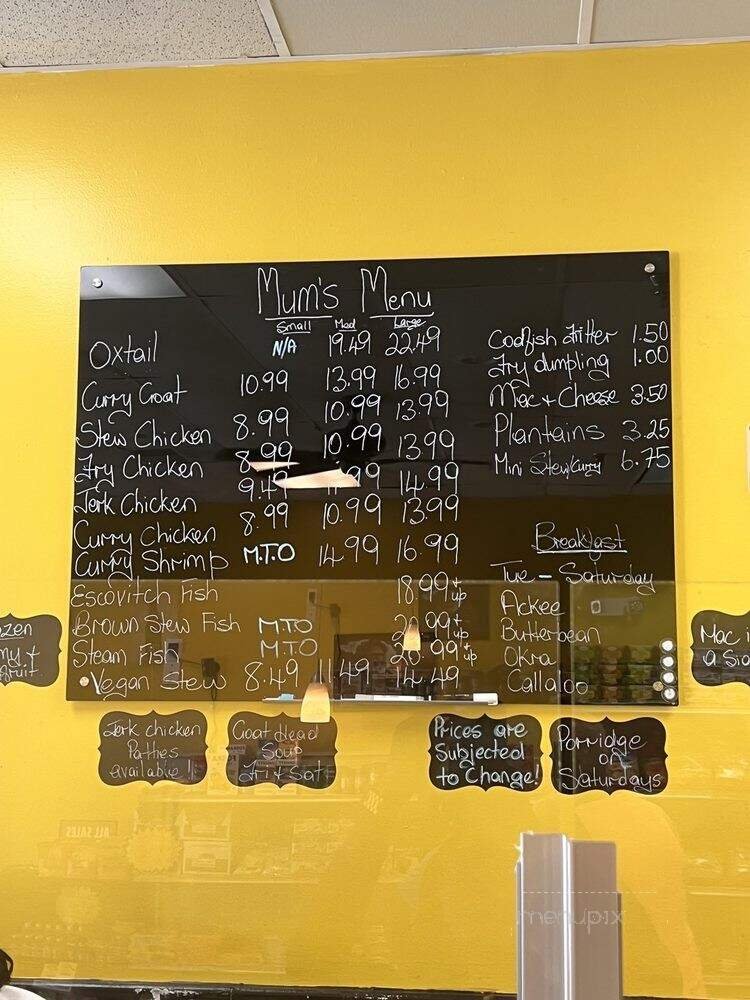 Mum's Menu
Small Med Large
Oxtail N/A 19.49 22.49
Curry Goat 10.99 13.99 16.99
Stew Chicken 8.99 10.99 13.99
Fry Chicken 8.99 10.99 13.99
Jerk Chicken 9.49 .99 14.99
Curry Chicken 8.99 10.99 13.99
Curry Shrimp M.T.O 14.99 16.99
Escovitch Fish 18.99+ up
Brown Stew Fish M.T.O .99+ up
Steam Fish M.T.O 20.99+ up
Vegan Stew 8.49 11.49 14.49
Codfish fritter 1.50
Fry dumpling 1.00
Mac + Cheese 3.50
Plantains 3.25
Mini Stew/curry 6.75
Breakfast
Tue - Saturday
Ackee
Butterbean
Okra
Callaloo
Mac
a Sid
Jerk chicken
Patties
available!
Goat Head
Soup
Fri & Sat
Prices are
Subjected
to Change!
Porridge
on
Saturdays
ALL SALES
menupix